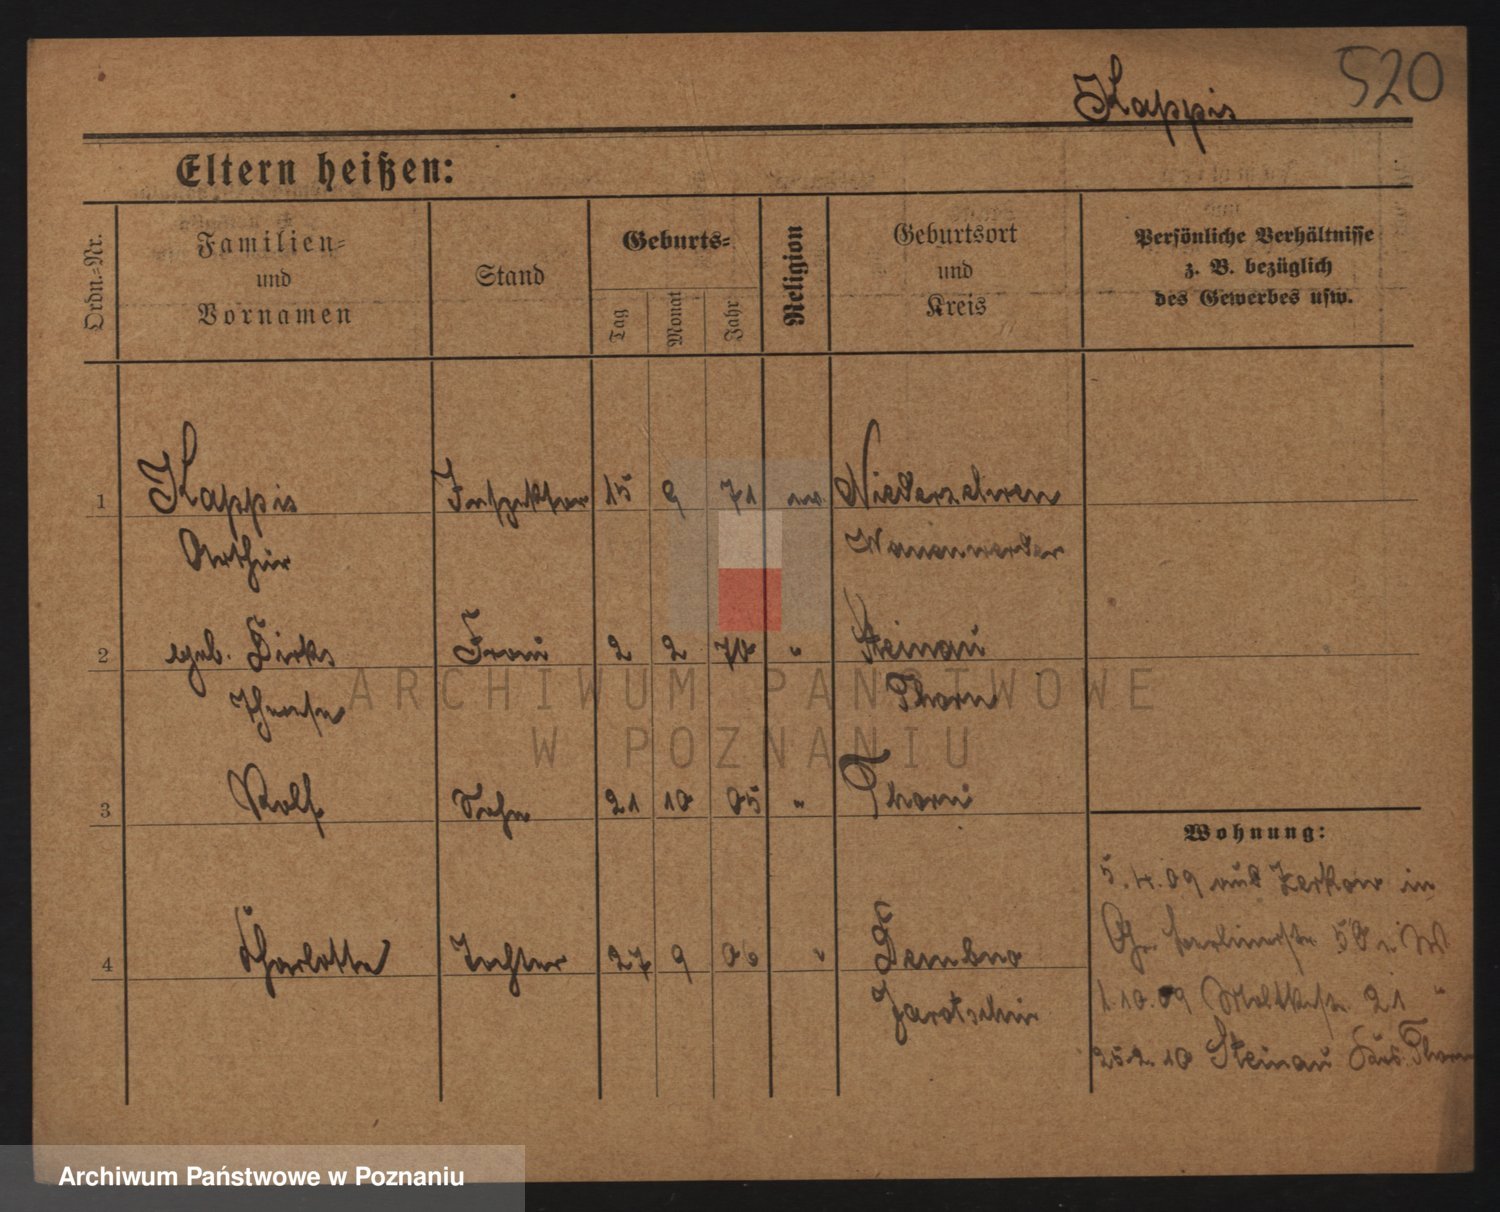 520
Kappis
Eltern heißen:
Ordn.-Nr.
Familien-
und
Vornamen
Stand
Geburts-
Tag
Monat
Jahr
Religion
Geburtsort
und
Kreis
Persönliche Verhältnisse
z. B. bezüglich
des Gewerbes usw.
1 Kappis Inspektor 15 9 71 ev. Niederzehren
Arthur Marienwerder
2 geb. Dirks Frau 2 2 70 " Steinau
Therese Thorn
3 Rolf Sohn 21 10 05 " Thorn
Wohnung:
5.4.09 aus Zerkow in
4 Charlotte Tochter 27 9 06 " Dembno
Jarotschin
Gr. Berlinerstr. 50
1.10.09 Moltkestr. 21 "
25.2.10 Steinau Thorn
ARCHIWUM PAŃSTWOWE
W POZNANIU
Archiwum Państwowe w Poznaniu